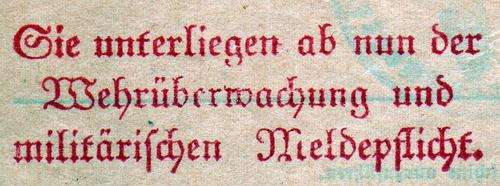 Sie unterliegen ab nun der
Wehrüberwachung und
militärischen Meldepflicht.